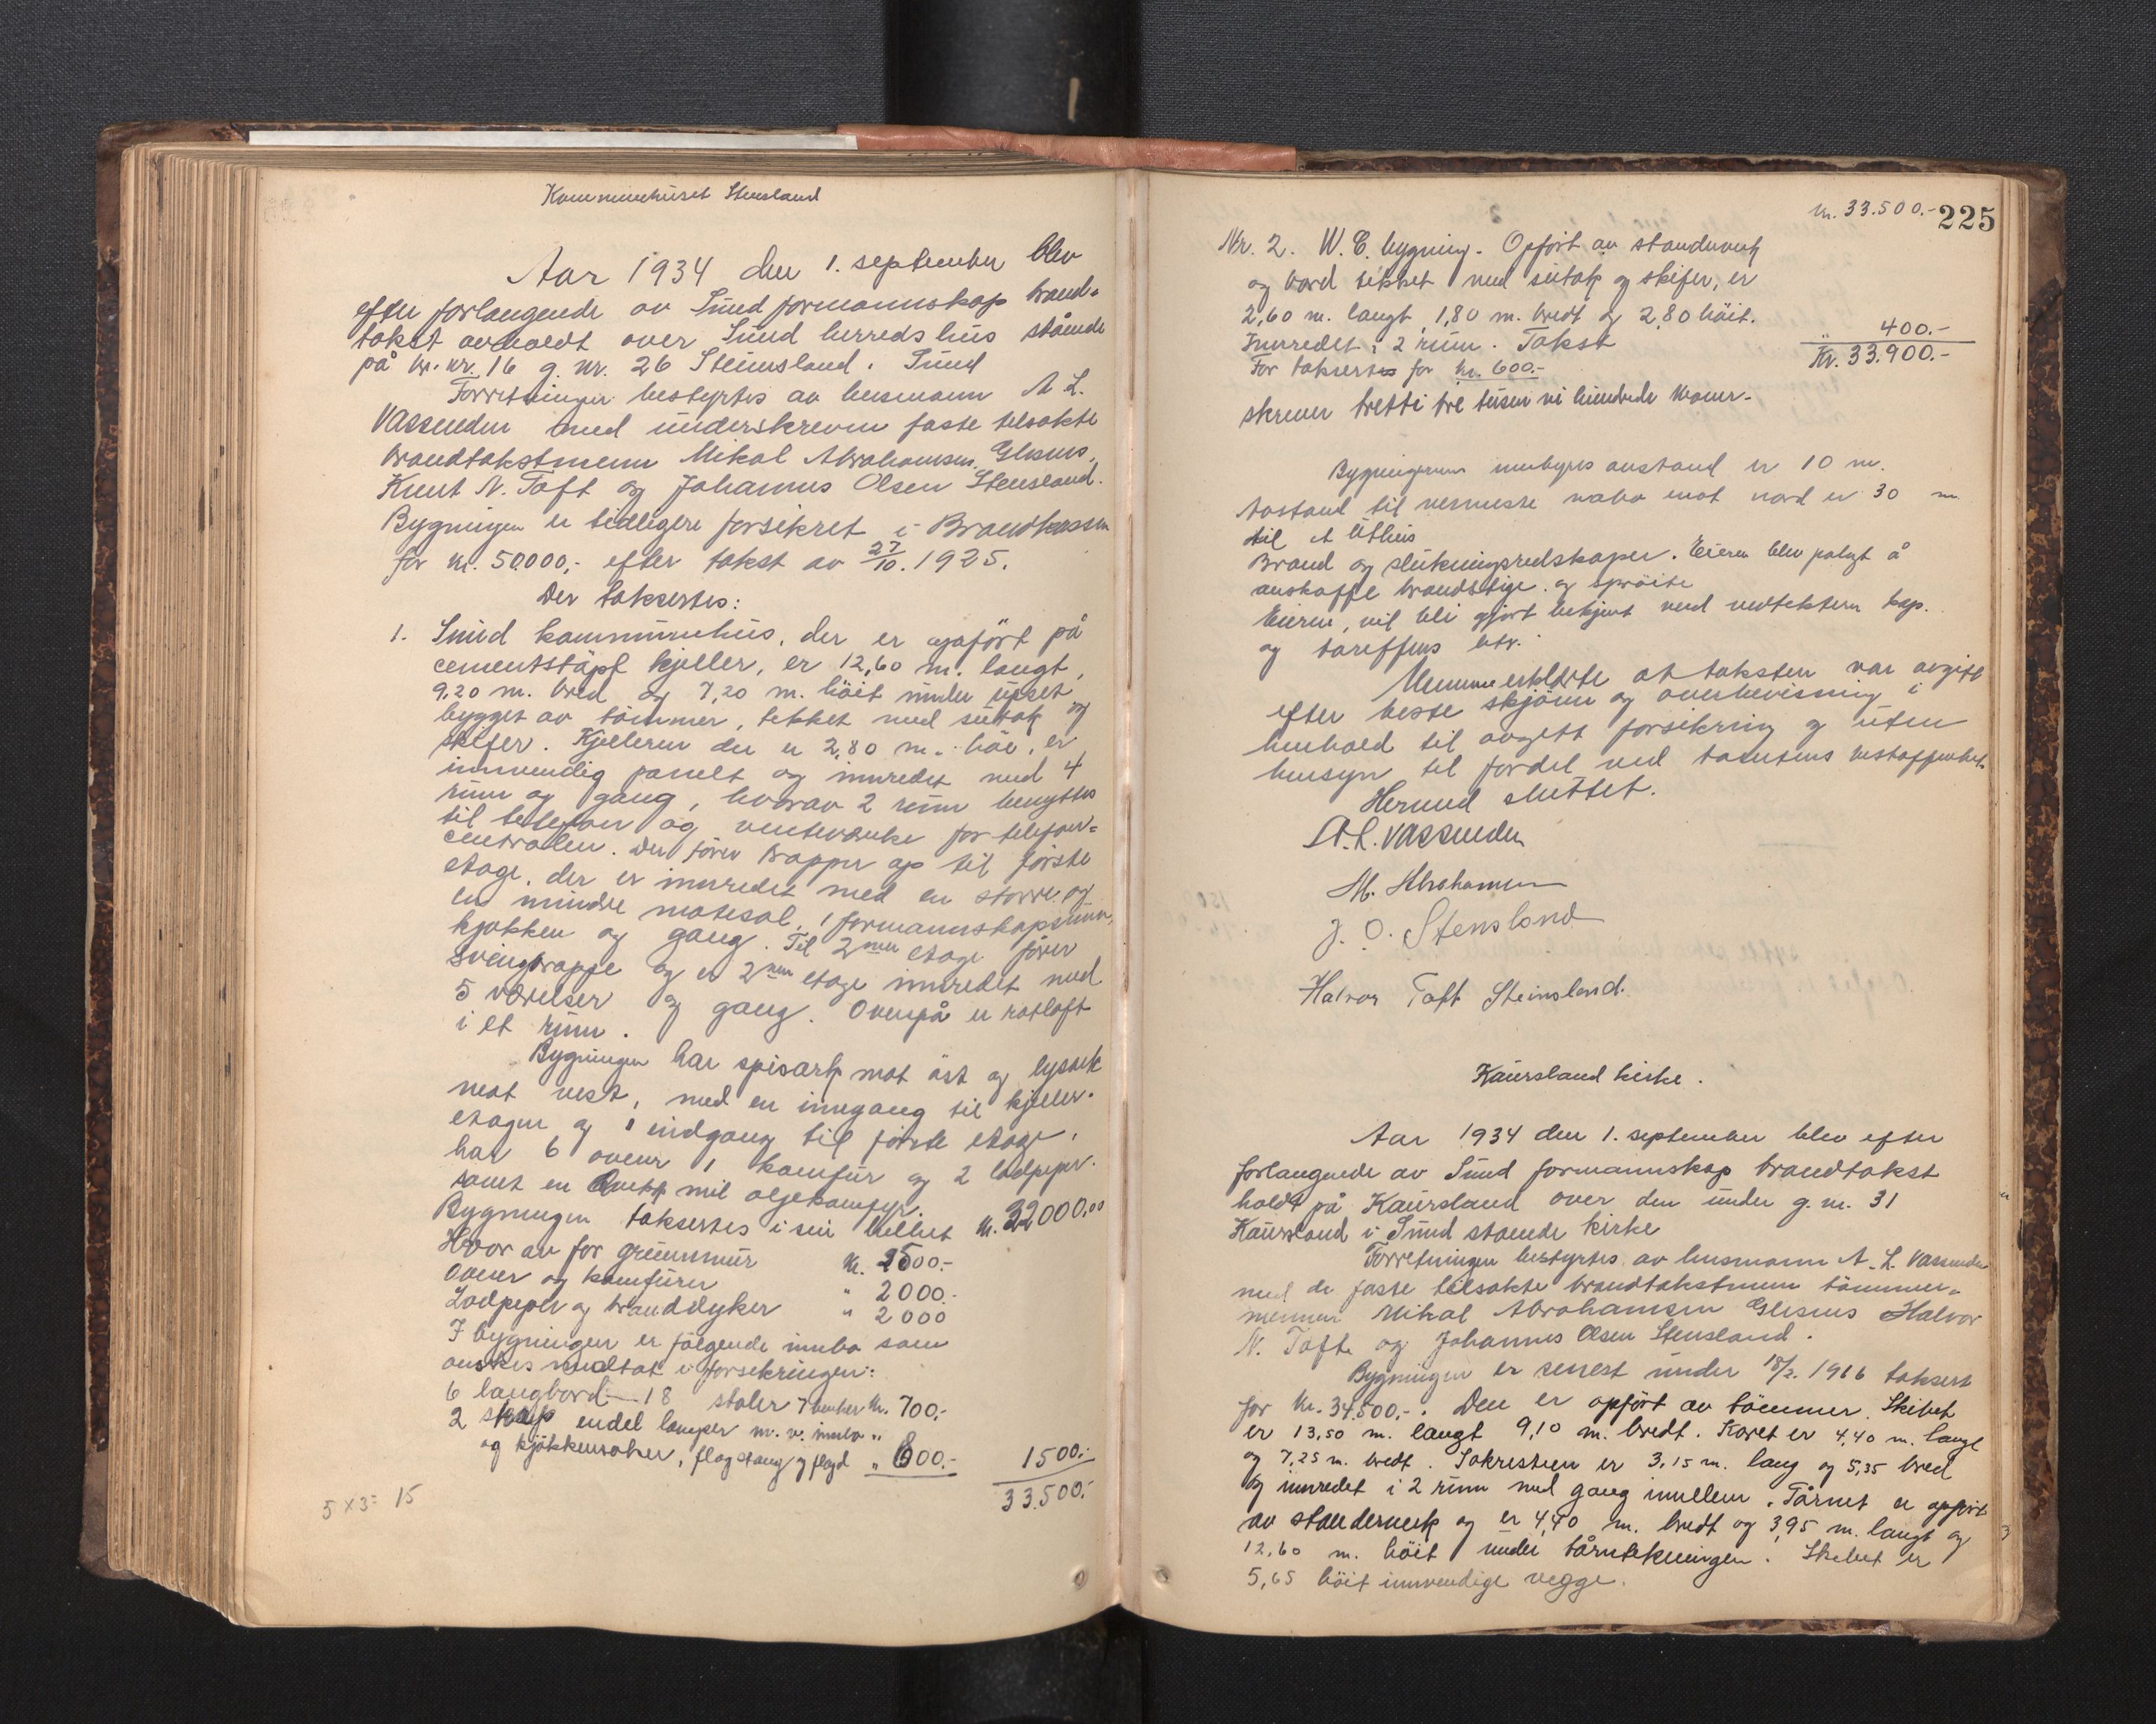 Kommunehuset Stensland
Aar 1934 den 1. september blev
efter forlangende av Sund formannskap brand-
takst avholdt over Sund herreds hus stående
på br. nr. 16 g. nr. 26 Steinsland. Sund
Forretningen bestyrtes av lensmann A L.
Vassenden med underskrevne faste tilsatte
brandtakstmenn Mikal Abrahamsen Glesnes,
Knut N. Toft og Johannes Olsen Stensland.
Bygningen er tidligere forsikret i Brandkassen
for kr. 50000,- efter takst av 27/10. 1925.
Der taksertes:
1. Sund kommunehus, der er opført på
cementstøpt kjeller, er 12,60 m. langt,
9,20 m. bred og 7,20 m. höit under upset
bygget av tömmer, tekket med sutak og
skifer. Kjelleren der er 2,80 m. höi, er
innvendig panelt og innredet med 4
rum og gang, hvorav 2 rum benyttes
til telefon og venteværelse for telefon-
centralen. Der förer trapper op til förste
etage, der er innredet med en större og
en mindre mötesal, 1 formannskapsrum,
kjøkken og gang. Til 2nen etage förer
svingtrappe og er 2nen etage innredet med
5 værelser og gang. Ovenpå er rotloft
i et rum.
Bygningen har spisark mot öst og
mot vest, med en inngang til kjeller-
etagen og 1 indgang til förste etage,
har 6 ovner 1 komfur og 2 lodpiper.
samt en oljekomfyr.
Bygningen taksertes i sin helhet kr. 32000,00
Hvor av for grunnmur kr. 2500.-
Ovner og komfurer " 2000.-
Lodpiper og branddyker " 2000
I bygningen er fölgende innbo som
önskes medtat i forsikringen:
6 langbord 18 stoler 7 benker kr. 700,-
2 skap endel lamper m. v. innbo "
og kjökkensaker, flagstang og flagd " 800.- 1500.-
33.500.-
5 x 3 = 15
kr. 33.500.- 225
Nr. 2. W. C. bygning. Opfört av standerverk
og bord tekket med sutak og skifer, er
2,60 m. langt, 1,80 m. bredt og 2,80 höit.
Innredet i 2 rum. Takst " 400.-
For taksert for kr. 600.- Kr. 33.900.-
skriver tretti tre tusen ni hundrede kroner.
Bygningenes innbyrdes avstand er 10 m.
Avstand til nermeste nabo mot nord er 30 m
til et Uthus
Brand og slukningsredskaper. Eieren blev pålagt å
anskaffe brandstige og spröite
Eieren, vil bli gjort bekjent med vedtektene kap.
og tariffens bstv.
Mennene erklærte at taksten var avgitt
efter beste skjönn og overbevisning i
henhold til avgitt forsikring og uten
hensyn til fordel ved tomtens bestaffenhet.
Hermed sluttet.
A. L. Vassenden
M. Abrahamsen
J. O. Stensland
Halvor Toft Steinsland.
Kaursland kirke.
Aar 1934 den 1. september blev efter
forlangende av Sund formannskap brandtakst
holdt på Kaursland over den under g. nr. 31
Kaursland i Sund stående kirke
Forretningen bestyrtes av lensmann A. L. Vassenden
med de faste tilsatte brandtakstmenn tömmer-
mennene Mikal Abrahamsen Glesnes Halvor
N. Tofte og Johannes Olsen Stensland.
Bygningen er senest under 18/2. 1916 taksert
for kr. 34.500,-. Den er opfört av tömmer. Skibet
er 13,50 m. langt 9,10 m. bredt. Koret er 4,40 m. langt
og 7,25 m. bredt. Sakristien er 3,15 m. lang og 5,35 bred
og innredet i 2 rum med gang imellem. Tårnet er opfört
av standerverk og er 4,40 m. bredt og 3,95 m. langt og
12,60 m. höit under tårntekningen. Skibet er
5,65 höit innvendige vegge.